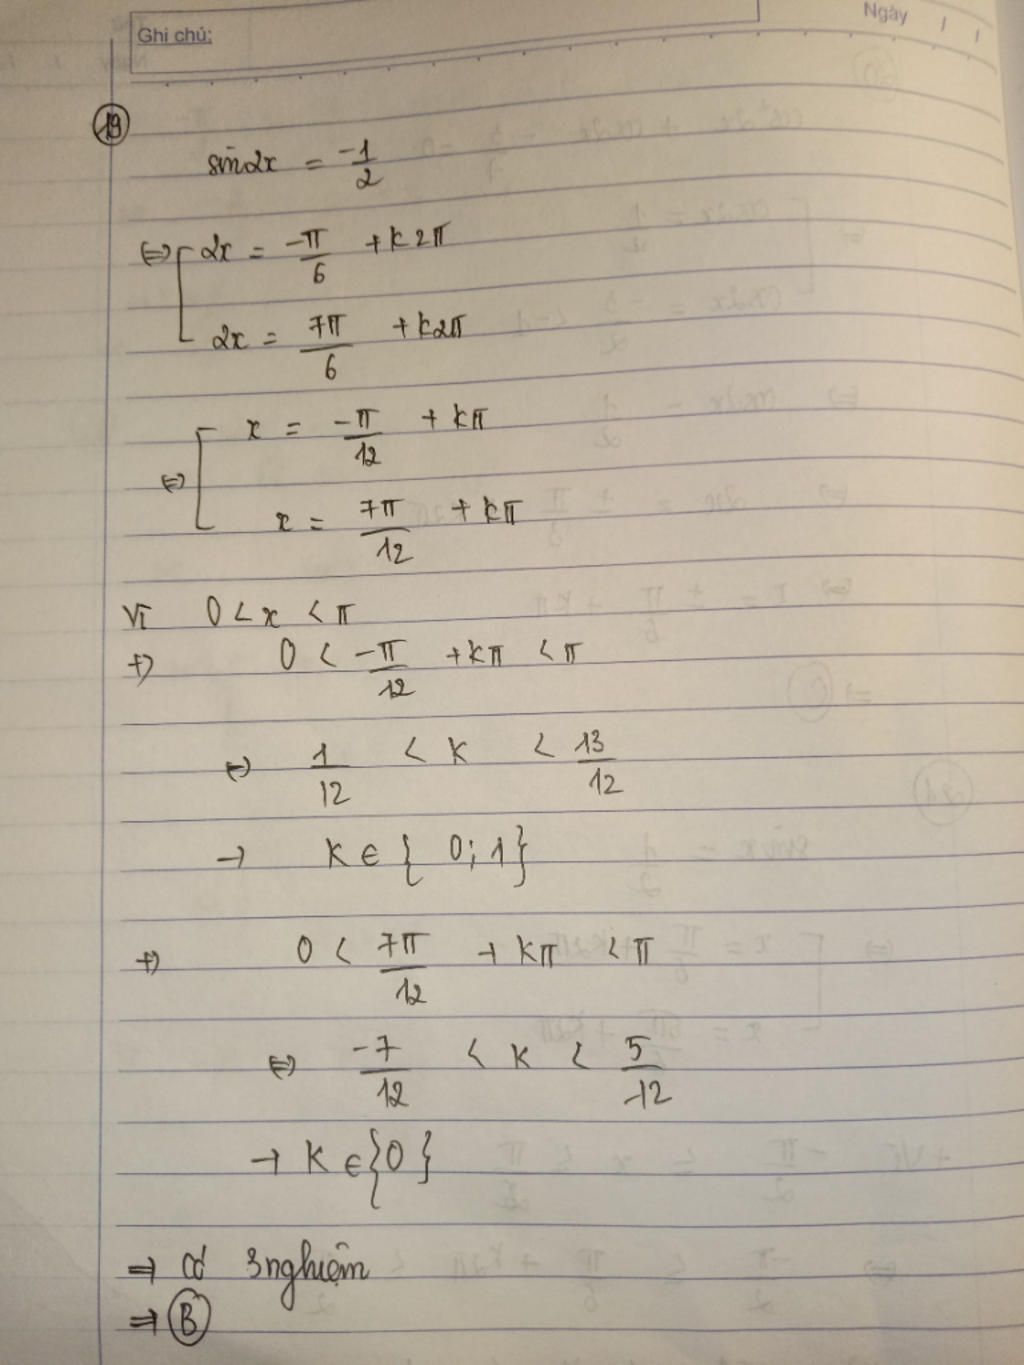 Ghi chú:
Ngày / /
19
sin2x = -1/2
⇔ [ 2x = -π/6 + k2π
2x = 7π/6 + k2π
⇔ [ x = -π/12 + kπ
x = 7π/12 + kπ
Vì 0 < x < π
+) 0 < -π/12 + kπ < π
⇔ 1/12 < k < 13/12
→ K ∈ { 0; 1}
+) 0 < 7π/12 + kπ < π
⇔ -7/12 < k < 5/12
→ K ∈ {0}
⇒ có 3 nghiệm
⇒ B